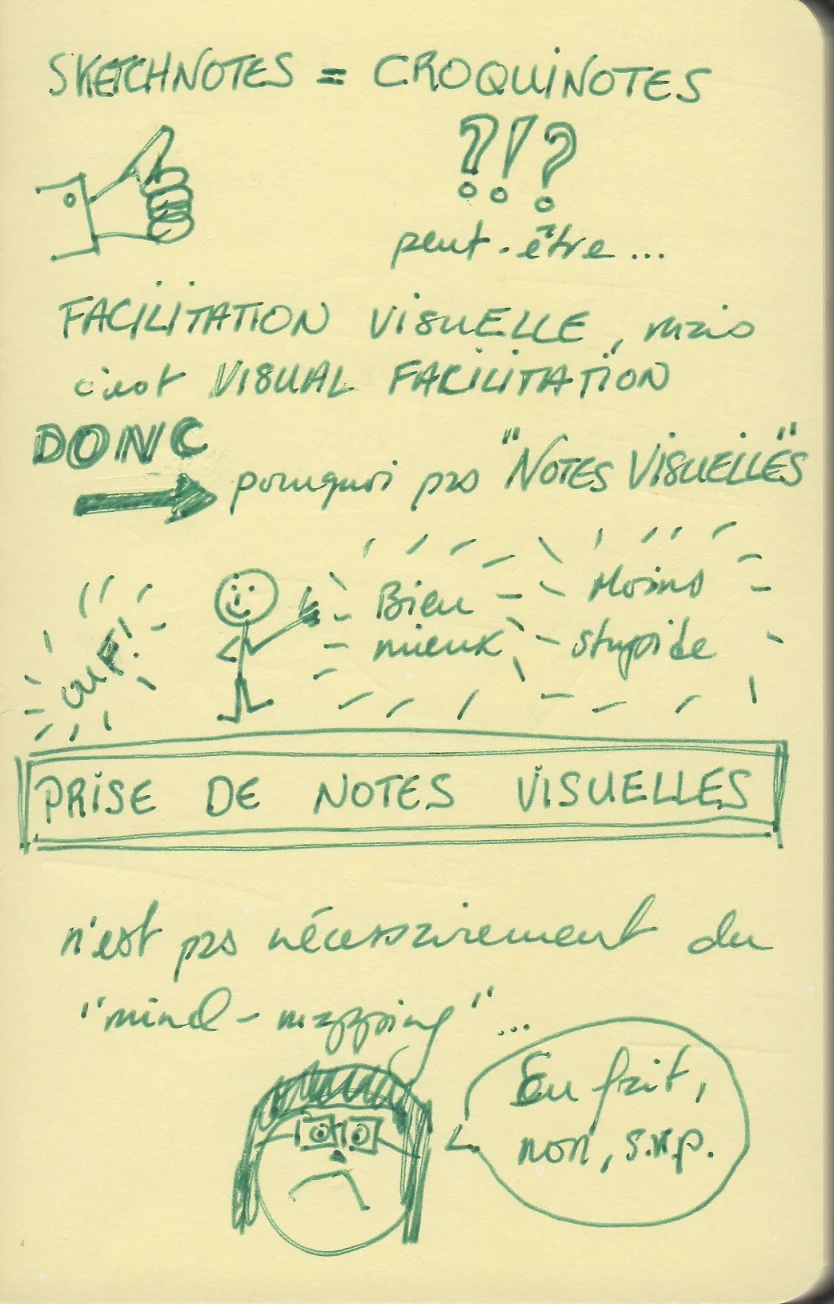 SKETCHNOTES = CROQUINOTES
?!?
peut-être...
FACILITATION VISUELLE, mais
c'est VISUAL FACILITATION
DONC
pourquoi pas "NOTES VISUELLES"
OUF!
Bien
mieux
Moins
stupide
PRISE DE NOTES VISUELLES
n'est pas nécessairement du
"mind-mapping"...
En fait,
non, s.v.p.